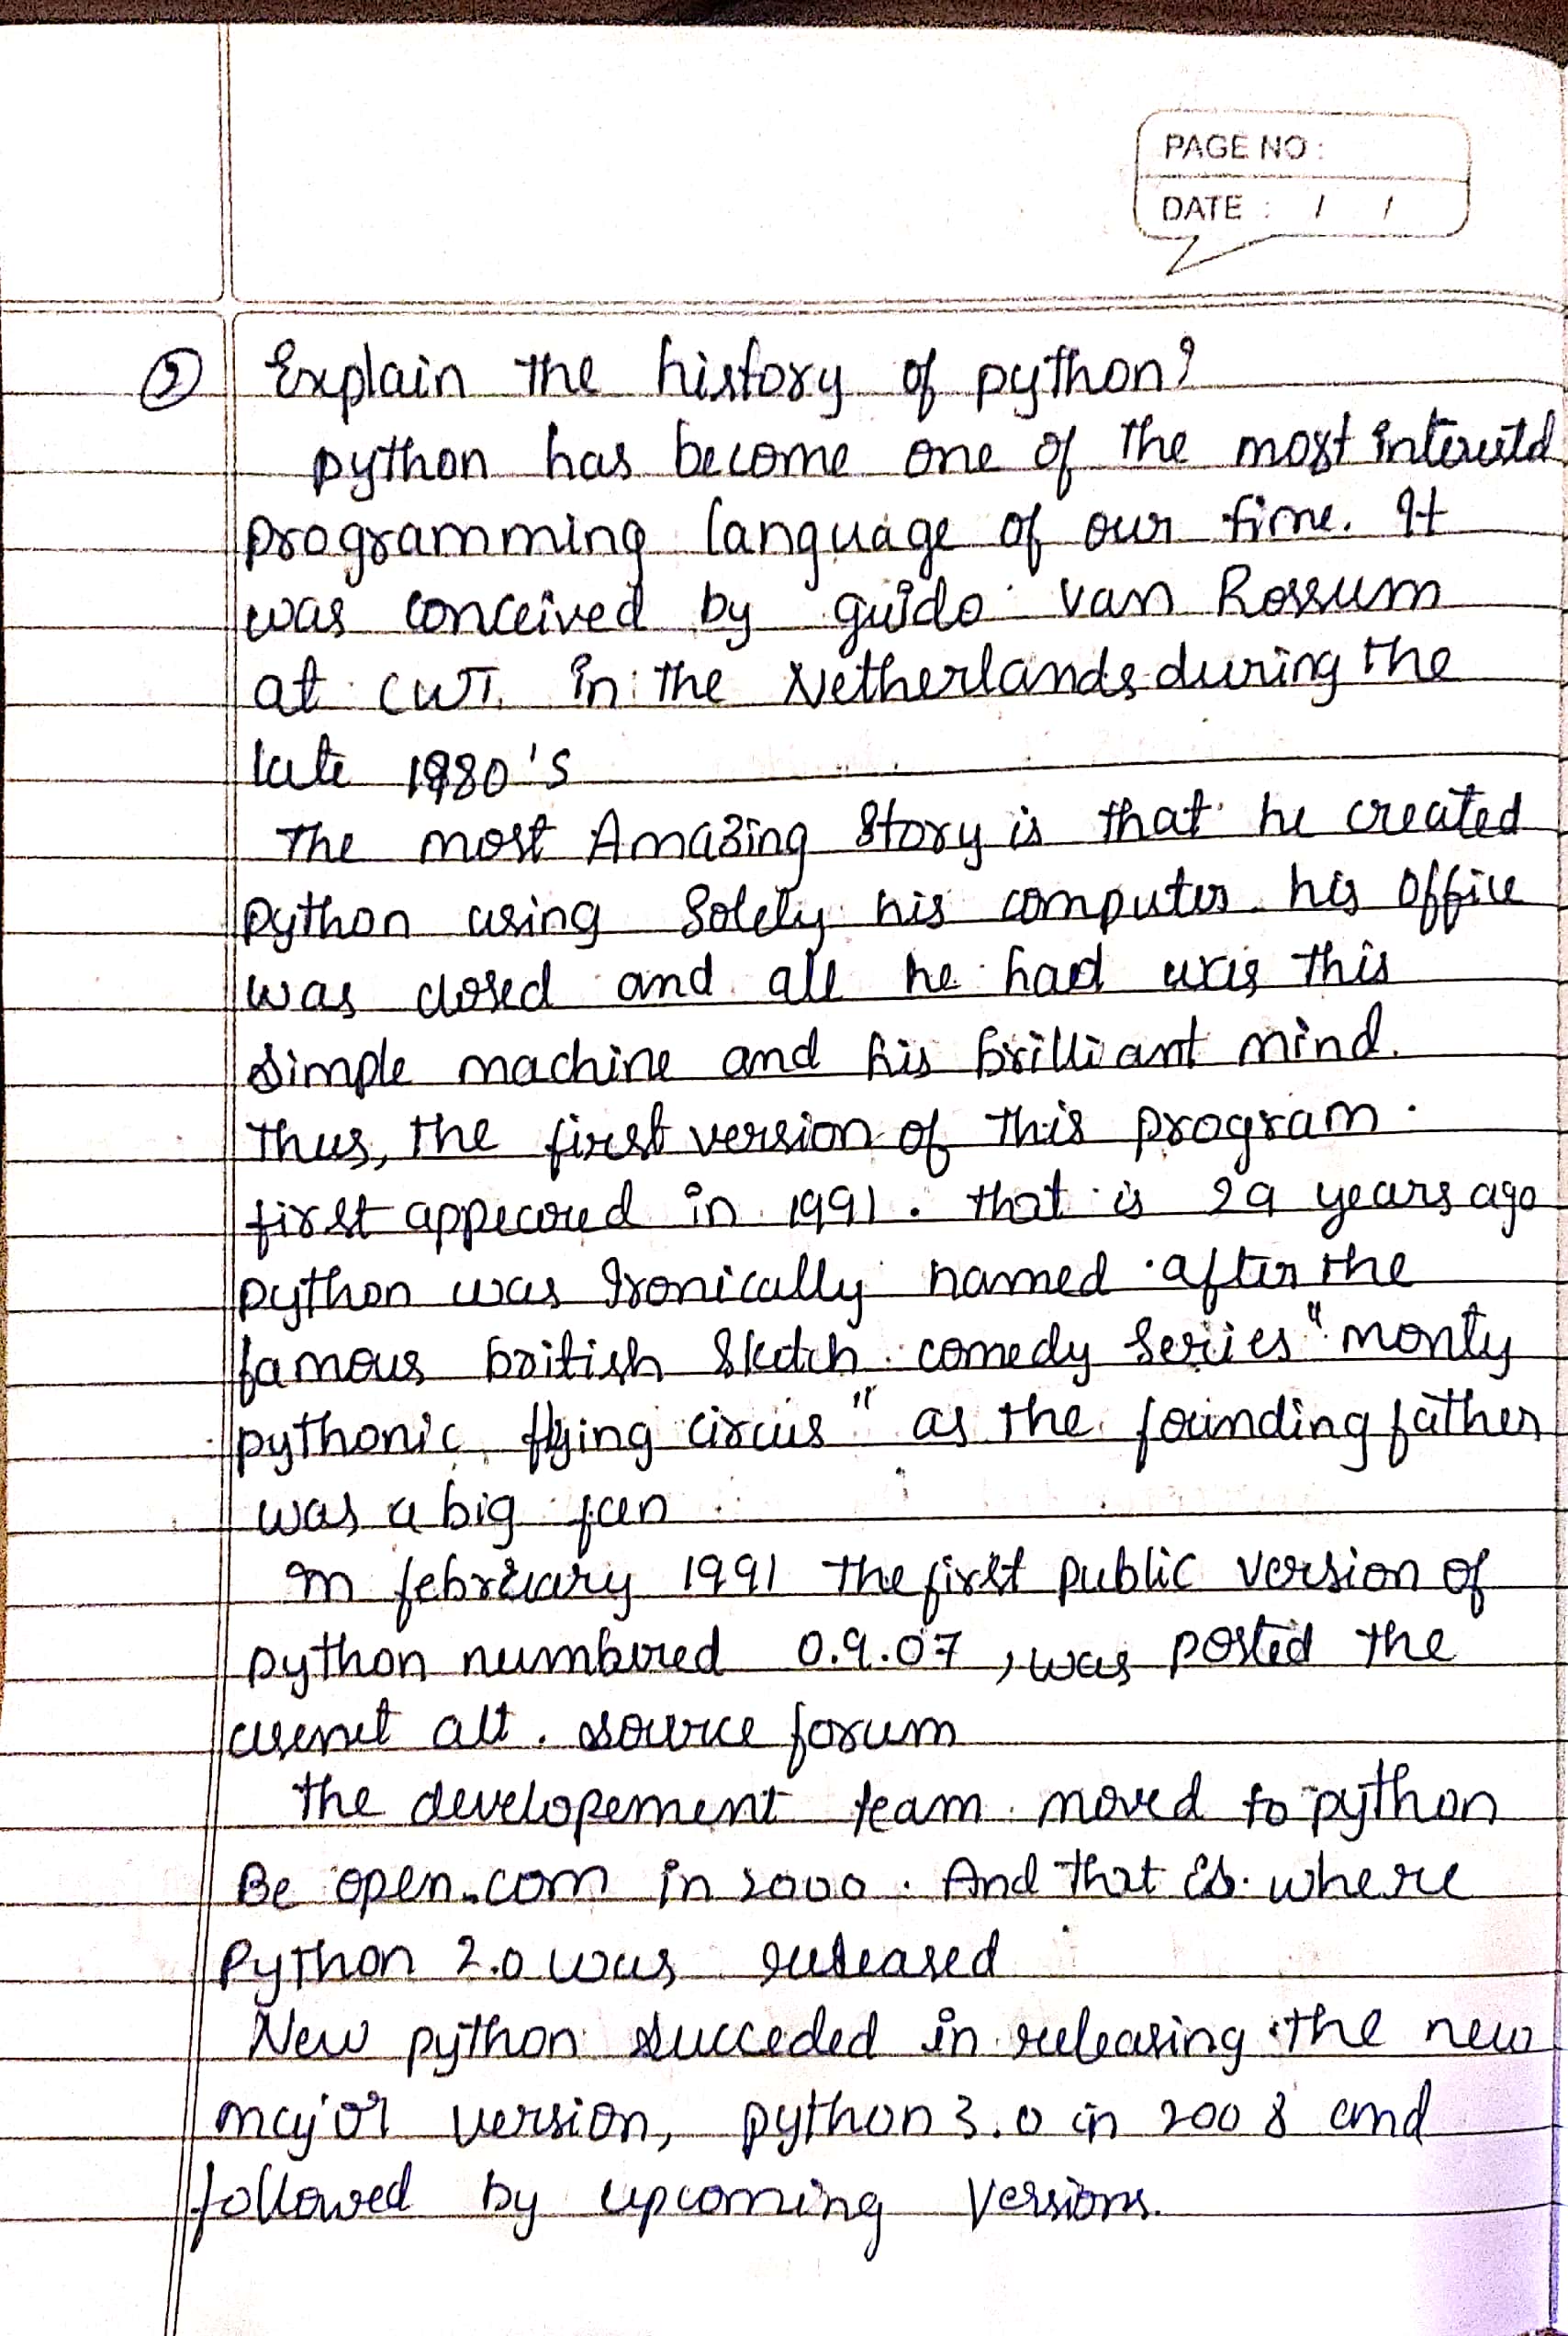 PAGE NO :
DATE : / /
② Explain the history of python?
python has become one of the most
programming language of our time. It
was conceived by guido van Rossum
at CWI. in the Netherlands during the
late 1980's
The most Amazing Story is that he created
python using Solely his computer. his office
was closed and all he had was this
simple machine and his brilliant mind.
Thus, the first version of this program
first appeared in 1991. that is 29 years ago
python was Ironically named after the
famous british Sketch comedy Series "monty
pythonic flying circus" as the founding father
was a big fan
In february 1991 the first public version of
python numbered 0.9.07, was posted the
usenet alt. source forum
the developement team moved to python
Be open.com in 2000. And that is where
Python 2.0 was released
New python succeded in releasing the new
major version, python 3.0 in 2008 and
followed by upcoming Versions.